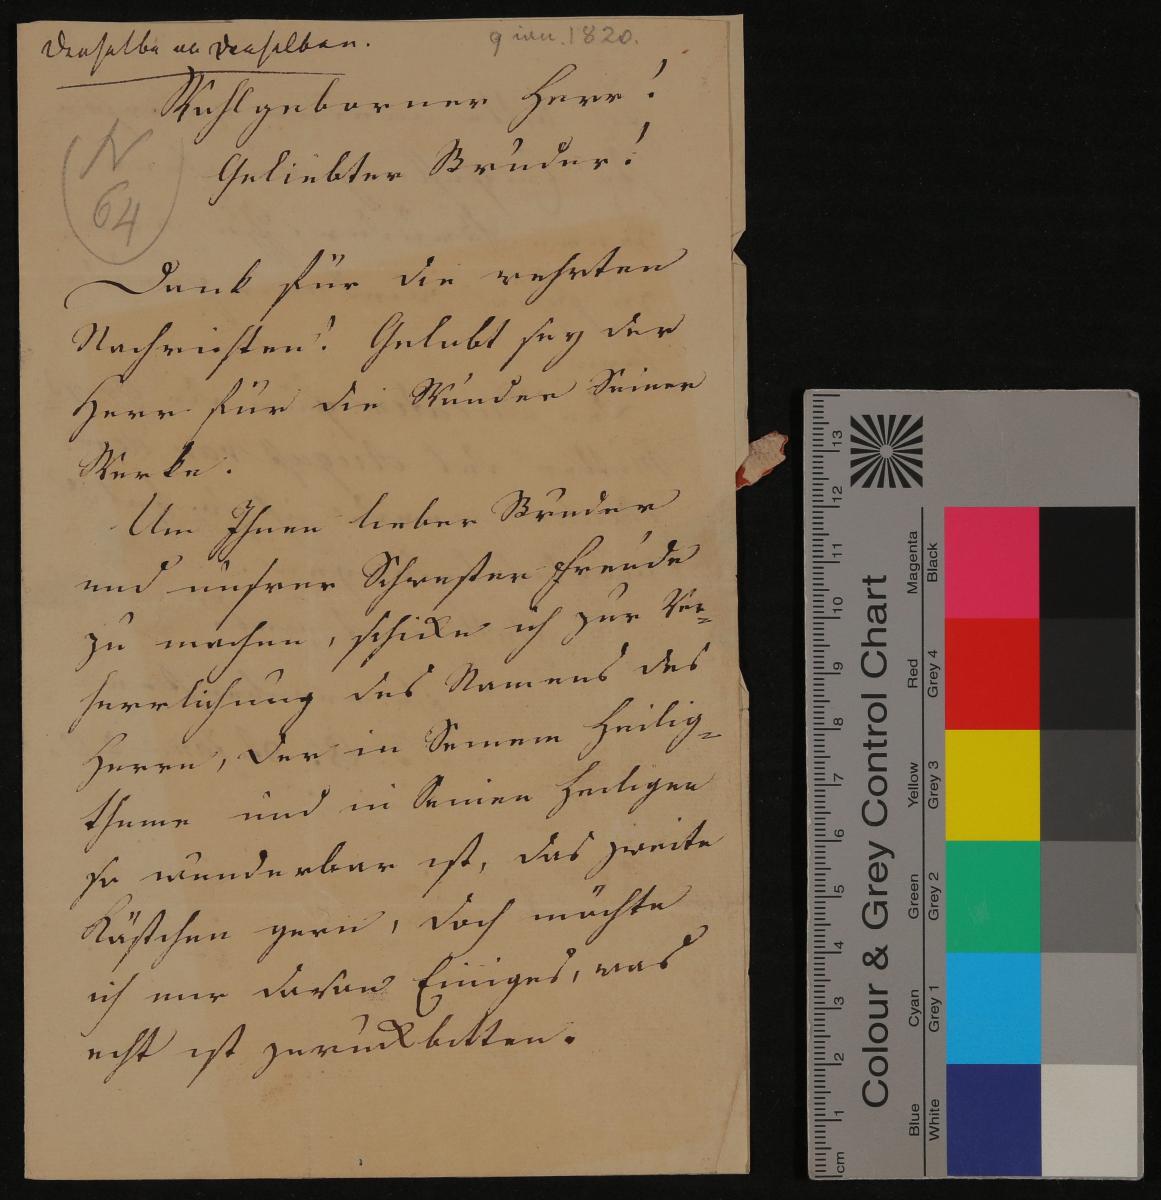 Derselbe an Denselben.
9 1820.
N
64
Wohlgeborner Herr!
Geliebter Bruder!
Dank für die rechten
Nachrichten! Gelobt sey der
Herr für die Wunder Seiner
Werke.
Um Ihnen lieber Bruder
und unsrer Schwester Freude
zu machen, schicke ich zur Ver=
herrlichung des Namens des
Herrn, der in Seinem Heilig=
thume und in Seinen Heiligen
so wunderbar ist, das zweite
Kästchen gern, doch möchte
ich mir davon Einiges, was
echt ist zurückbitten.
Colour & Grey Control Chart
Blue Cyan Green Yellow Red Magenta
White Grey 1 Grey 2 Grey 3 Grey 4 Black
cm 1 2 3 4 5 6 7 8 9 10 11 12 13